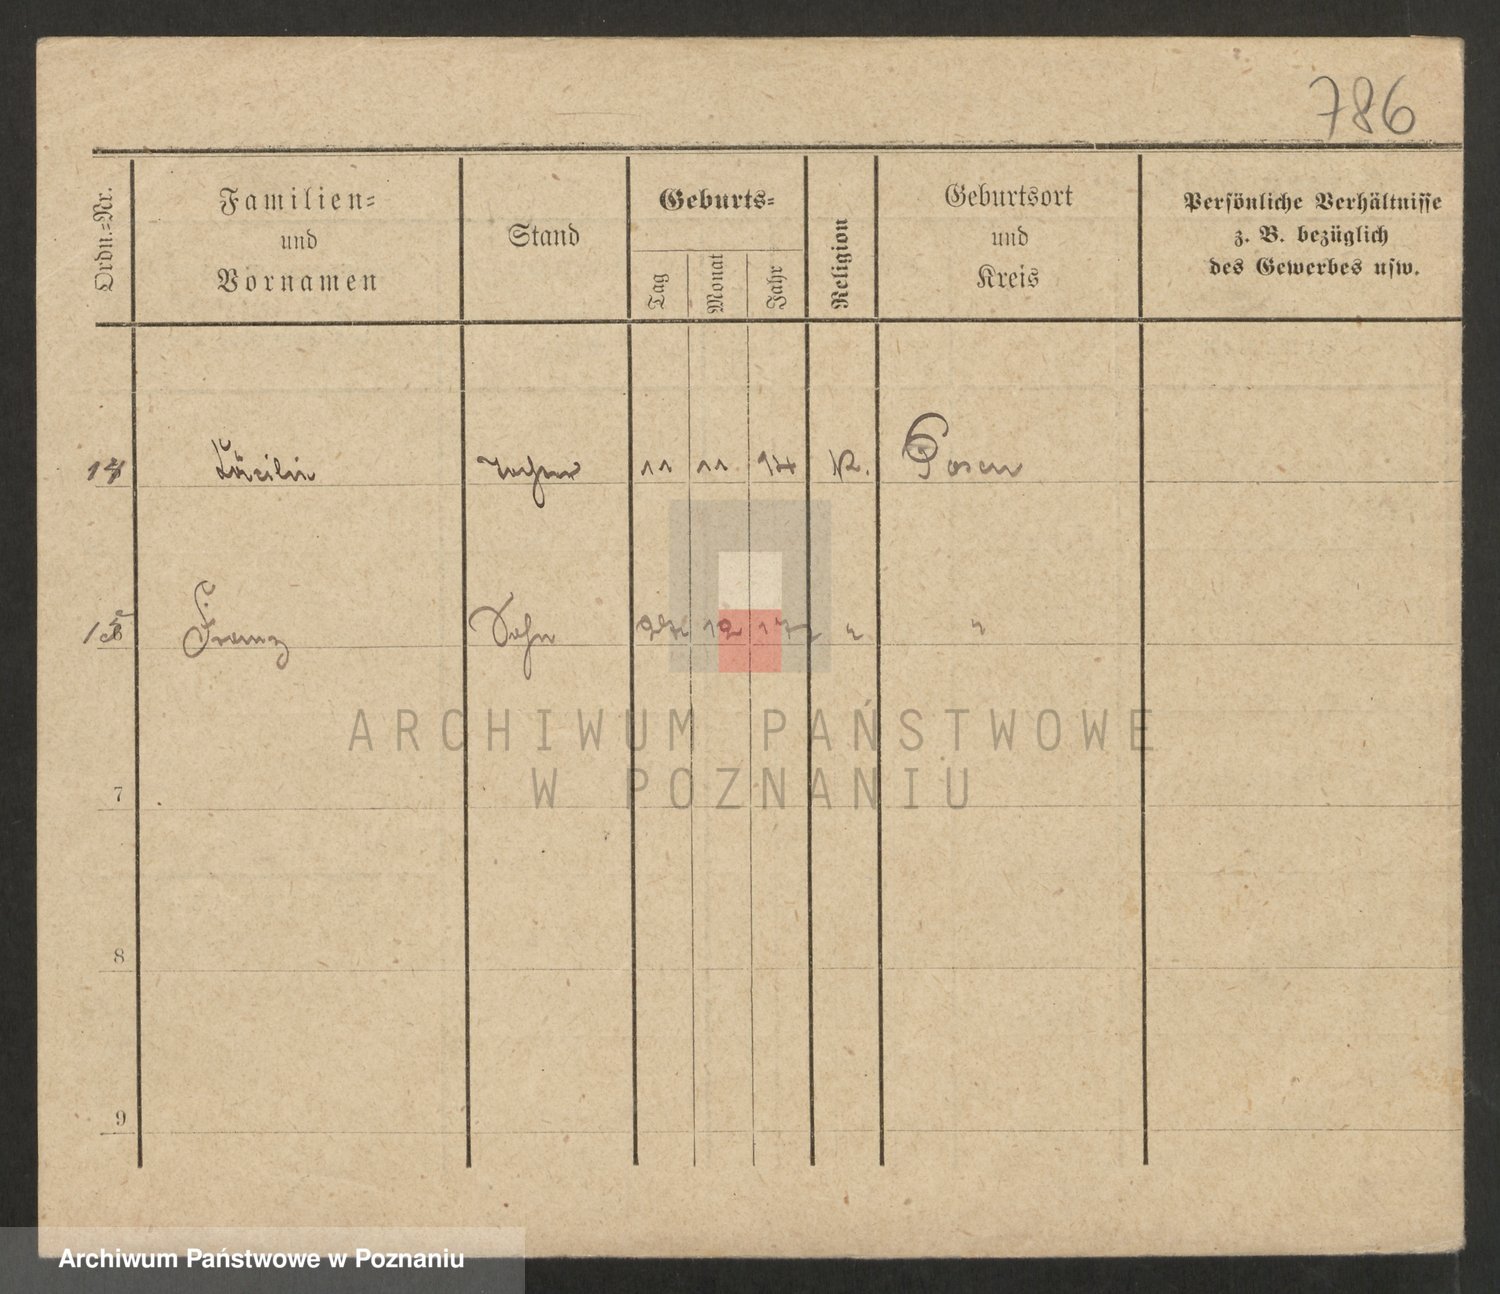 786
Ordn.=Nr.
Familien=
und
Vornamen
Stand
Geburts=
Tag
Monat
Jahr
Religion
Geburtsort
und
Kreis
Persönliche Verhältnisse
z. B. bezüglich
des Gewerbes usw.
14 Cäcilie 11 11 14 K. Posen
15 Franz Sohn 12 " "
7
8
9
ARCHIWUM PAŃSTWOWE
W POZNANIU
Archiwum Państwowe w Poznaniu